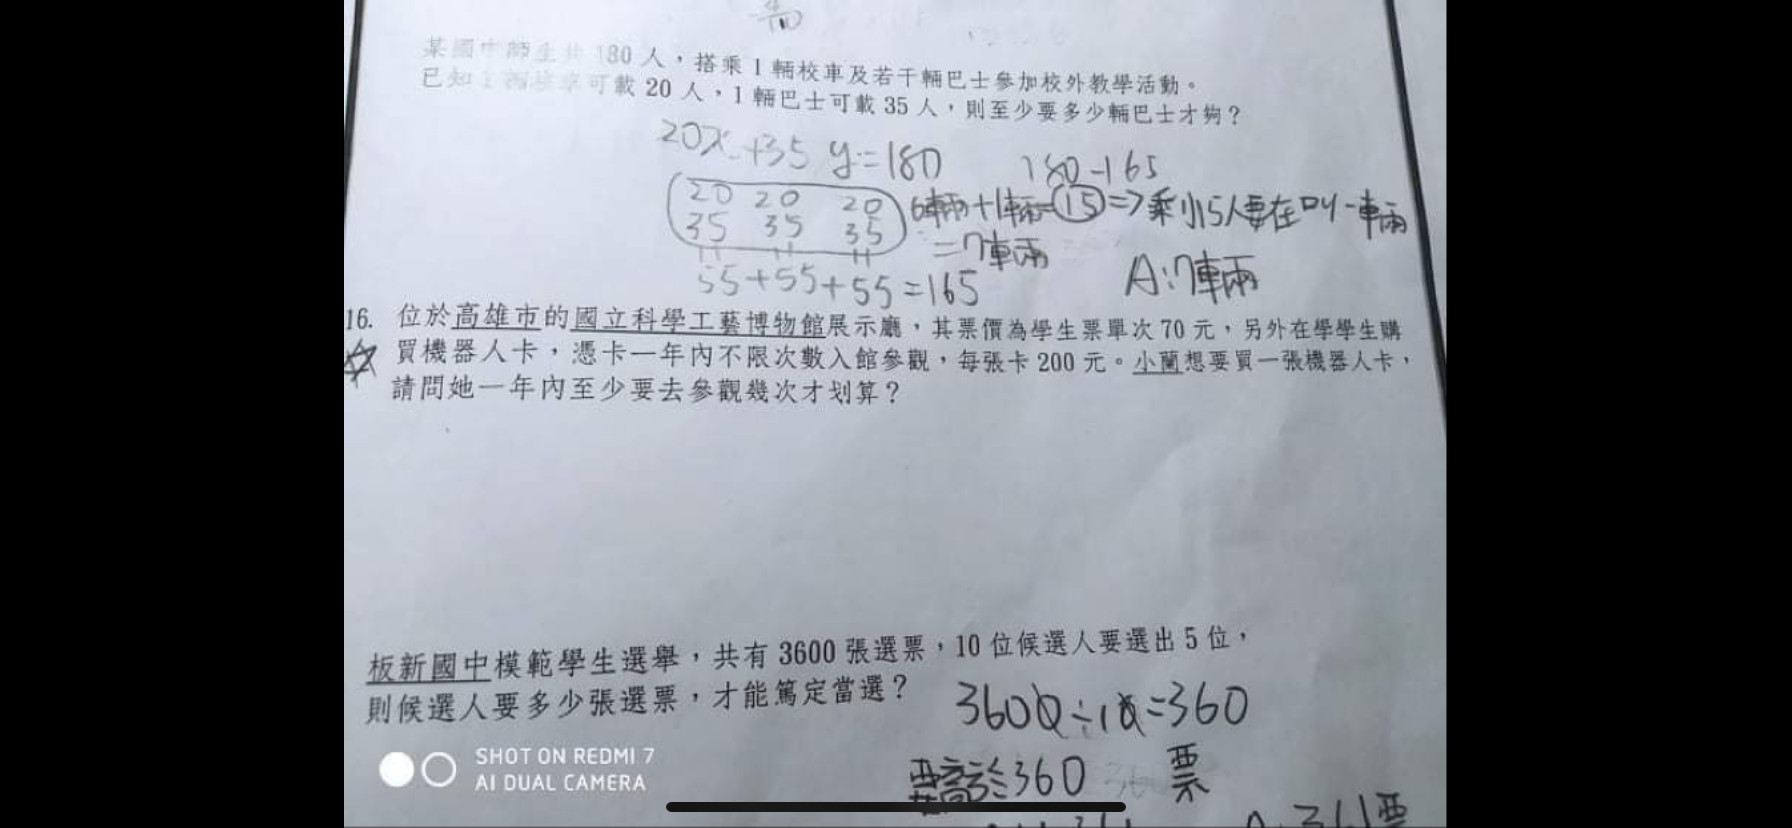 某國中師生共 180 人，搭乘 1 輛校車及若干輛巴士參加校外教學活動。
已知 1 輛校車可載 20 人，1 輛巴士可載 35 人，則至少要多少輛巴士才夠？
20x+35y=180
180-165
20 20 20
35 35 35
6車兩+1車兩=15=>乘小15人要在叫一車兩
=7車兩
55+55+55=165
A:7車兩
16. 位於高雄市的國立科學工藝博物館展示廳，其票價為學生票單次 70 元，另外在學學生購
買機器人卡，憑卡一年內不限次數入館參觀，每張卡 200 元。小蘭想要買一張機器人卡，
請問她一年內至少要去參觀幾次才划算？
板新國中模範學生選舉，共有 3600 張選票，10 位候選人要選出 5 位，
則候選人要多少張選票，才能篤定當選？
3600÷10=360
要高於360 票
A:361票
SHOT ON REDMI 7
AI DUAL CAMERA